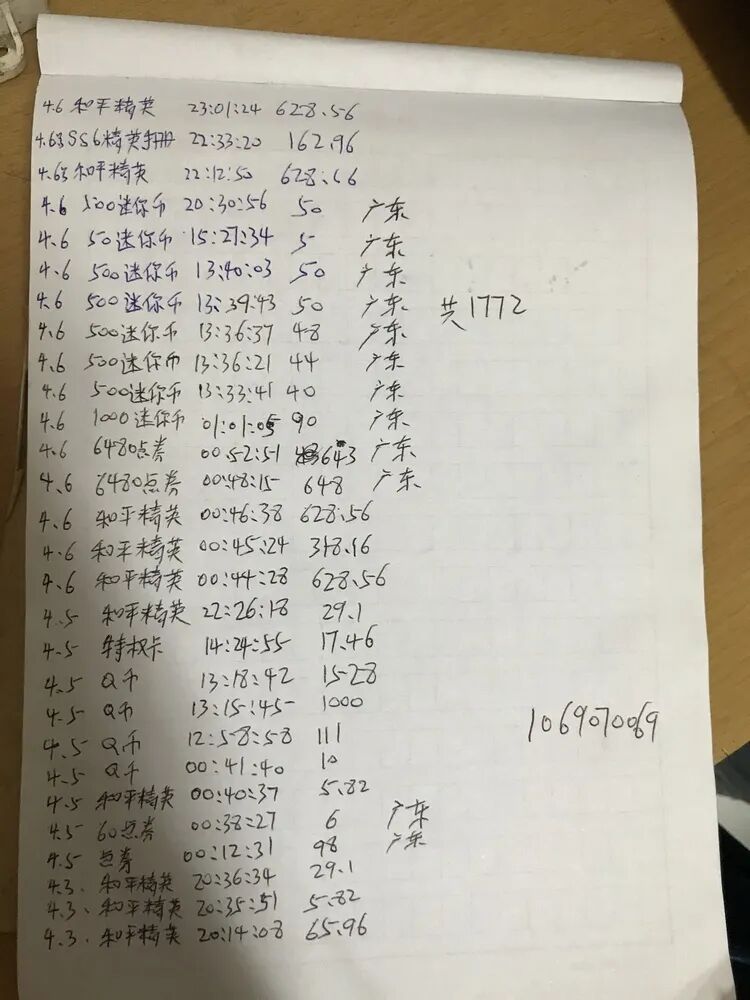 4.6 和平精英 23:01:24 628.56
4.6 SS6精英手册 22:33:20 162.96
4.6 和平精英 22:12:50 628.16
4.6 500迷你币 20:30:56 50 广东
4.6 50迷你币 15:27:34 5 广东
4.6 500迷你币 13:40:03 50 广东
4.6 500迷你币 13:39:43 50 广东 共1772
4.6 500迷你币 13:36:37 48 广东
4.6 500迷你币 13:36:21 44 广东
4.6 500迷你币 13:33:41 40 广东
4.6 1000迷你币 01:01:05 90 广东
4.6 6480点券 00:52:51 643 广东
4.6 6480点券 00:48:15 648 广东
4.6 和平精英 00:46:38 628.56
4.6 和平精英 00:45:24 318.16
4.6 和平精英 00:44:28 628.56
4.5 和平精英 22:26:18 29.1
4.5 特权卡 14:24:55 17.46
4.5 Q币 13:18:42 1528
4.5 Q币 13:15:45 1000
4.5 Q币 12:58:58 111
4.5 Q币 00:41:40 10
4.5 和平精英 00:40:37 5.82
4.5 60点券 00:38:27 6 广东
4.5 点券 00:12:31 98 广东
4.3. 和平精英 20:36:34 29.1
4.3. 和平精英 20:35:51 5.82
4.3. 和平精英 20:14:08 65.96
1069070069